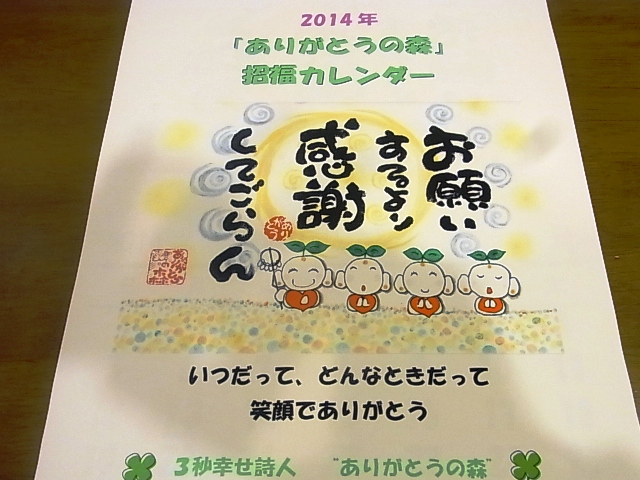 2014年
「ありがとうの森」
招福カレンダー
お願い
するより
感謝
してごらん
いつだって、どんなときだって
笑顔でありがとう
3秒幸せ詩人 "ありがとうの森"